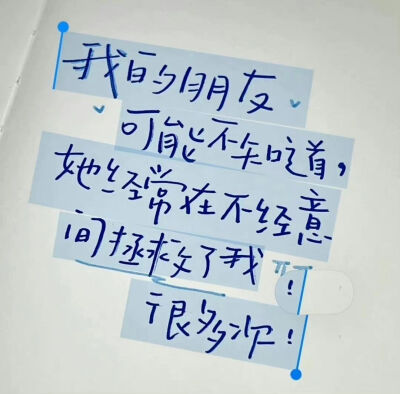 我的朋友
可能不知道，
她经常在不经意
间拯救了我！
很多次！